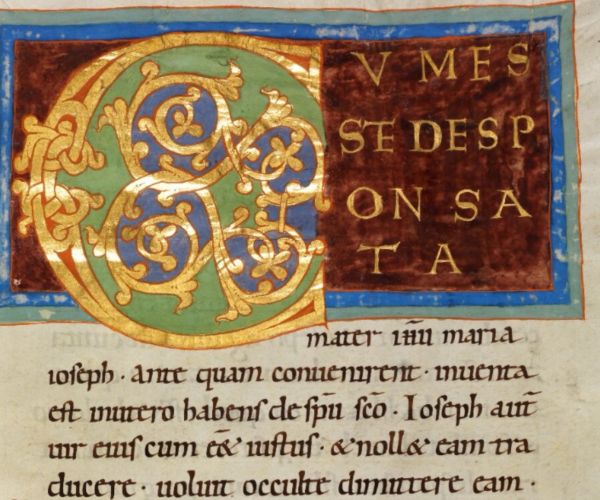 CVMES
SET DESP
ONSA
TA
mater ihū maria
ioseph · Ante quam conuenirent · inuenta
est inutero habens de spū sc̄o · Ioseph aut̄
uir eius cum e&̄ iustus · & noll& eam tra
ducere · uoluit occulte dimittere eam ·